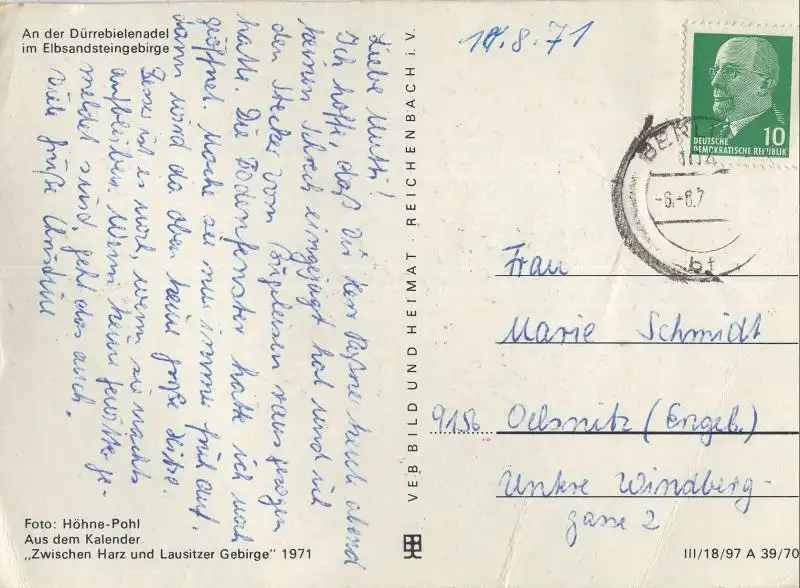 An der Dürrebielenadel
im Elbsandsteingebirge
11.8.71
DEUTSCHE
DEMOKRATISCHE REPUBLIK
10
BERLIN
104
-6.-8.7
bt
Liebe Mutti!
Ich hoffe, daß Dir Herr heute abend
keinen Schreck eingejagt hat und ich
den Stecker vom Bügeleisen rausgezogen
hatte. Die Bodenfenster hatte ich noch
geöffnet. Mache sie nur immer früh auf.
dann wird da oben keine große Hitze.
Besser ist es noch, wenn sie nachts
aufbleiben. Wenn keine Gewitter ge-
meldet sind, geht das auch.
Viele Grüße Christine
VEB BILD UND HEIMAT · REICHENBACH i. V.
Frau
Marie Schmidt
9156 Oelsnitz (Erzgeb.)
Untere Windberg-
gasse 2
Foto: Höhne-Pohl
Aus dem Kalender
„Zwischen Harz und Lausitzer Gebirge" 1971
III/18/97 A 39/70